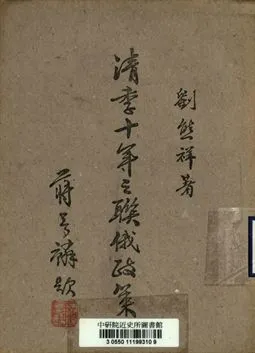 劉熊祥著
清季十年之聯俄政策
蔣 題
中研院近史所圖書館
3 0550 11199310 9